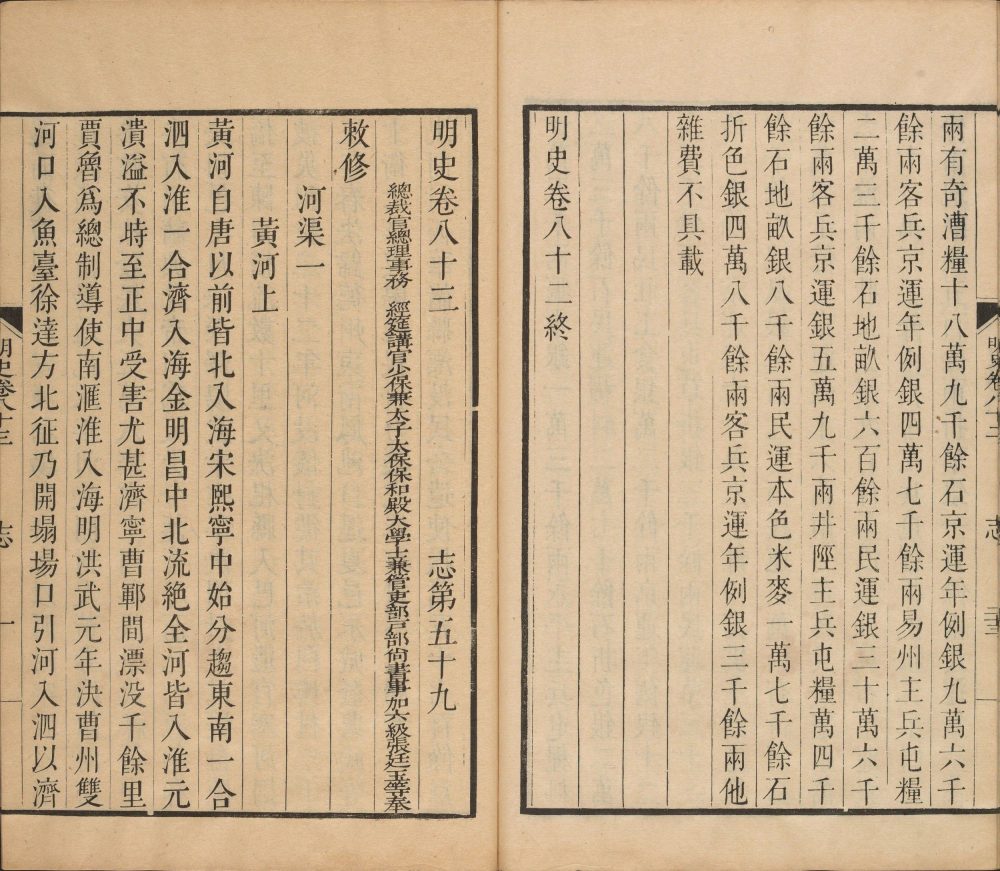 兩有奇漕糧十八萬九千餘石京運年例銀九萬六千
餘兩客兵京運年例銀四萬七千餘兩易州主兵屯糧
二萬三千餘石地畝銀六百餘兩民運銀三十萬六千
餘兩客兵京運銀五萬九千兩井陘主兵屯糧萬四千
餘石地畝銀八千餘兩民運本色米麥一萬七千餘石
折色銀四萬八千餘兩客兵京運年例銀三千餘兩他
雜費不具載
明史卷八十二終
明史卷八十三 志第五十九
總裁官總理事務 經筵講官少保兼太子太保保和殿大學士兼管吏部戶部尚書事加六級張廷玉等奉
敕修
河渠一
黃河上
黃河自唐以前皆北入海宋熙寧中始分趨東南一合
泗入淮一合濟入海金明昌中北流絕全河皆入淮元
潰溢不時至正中受害尤甚濟寧曹鄆間漂没千餘里
賈魯爲總制導使南滙淮入海明洪武元年決曹州雙
河口入魚臺徐達方北征乃開塌場口引河入泗以濟
明史卷八十三 志 一